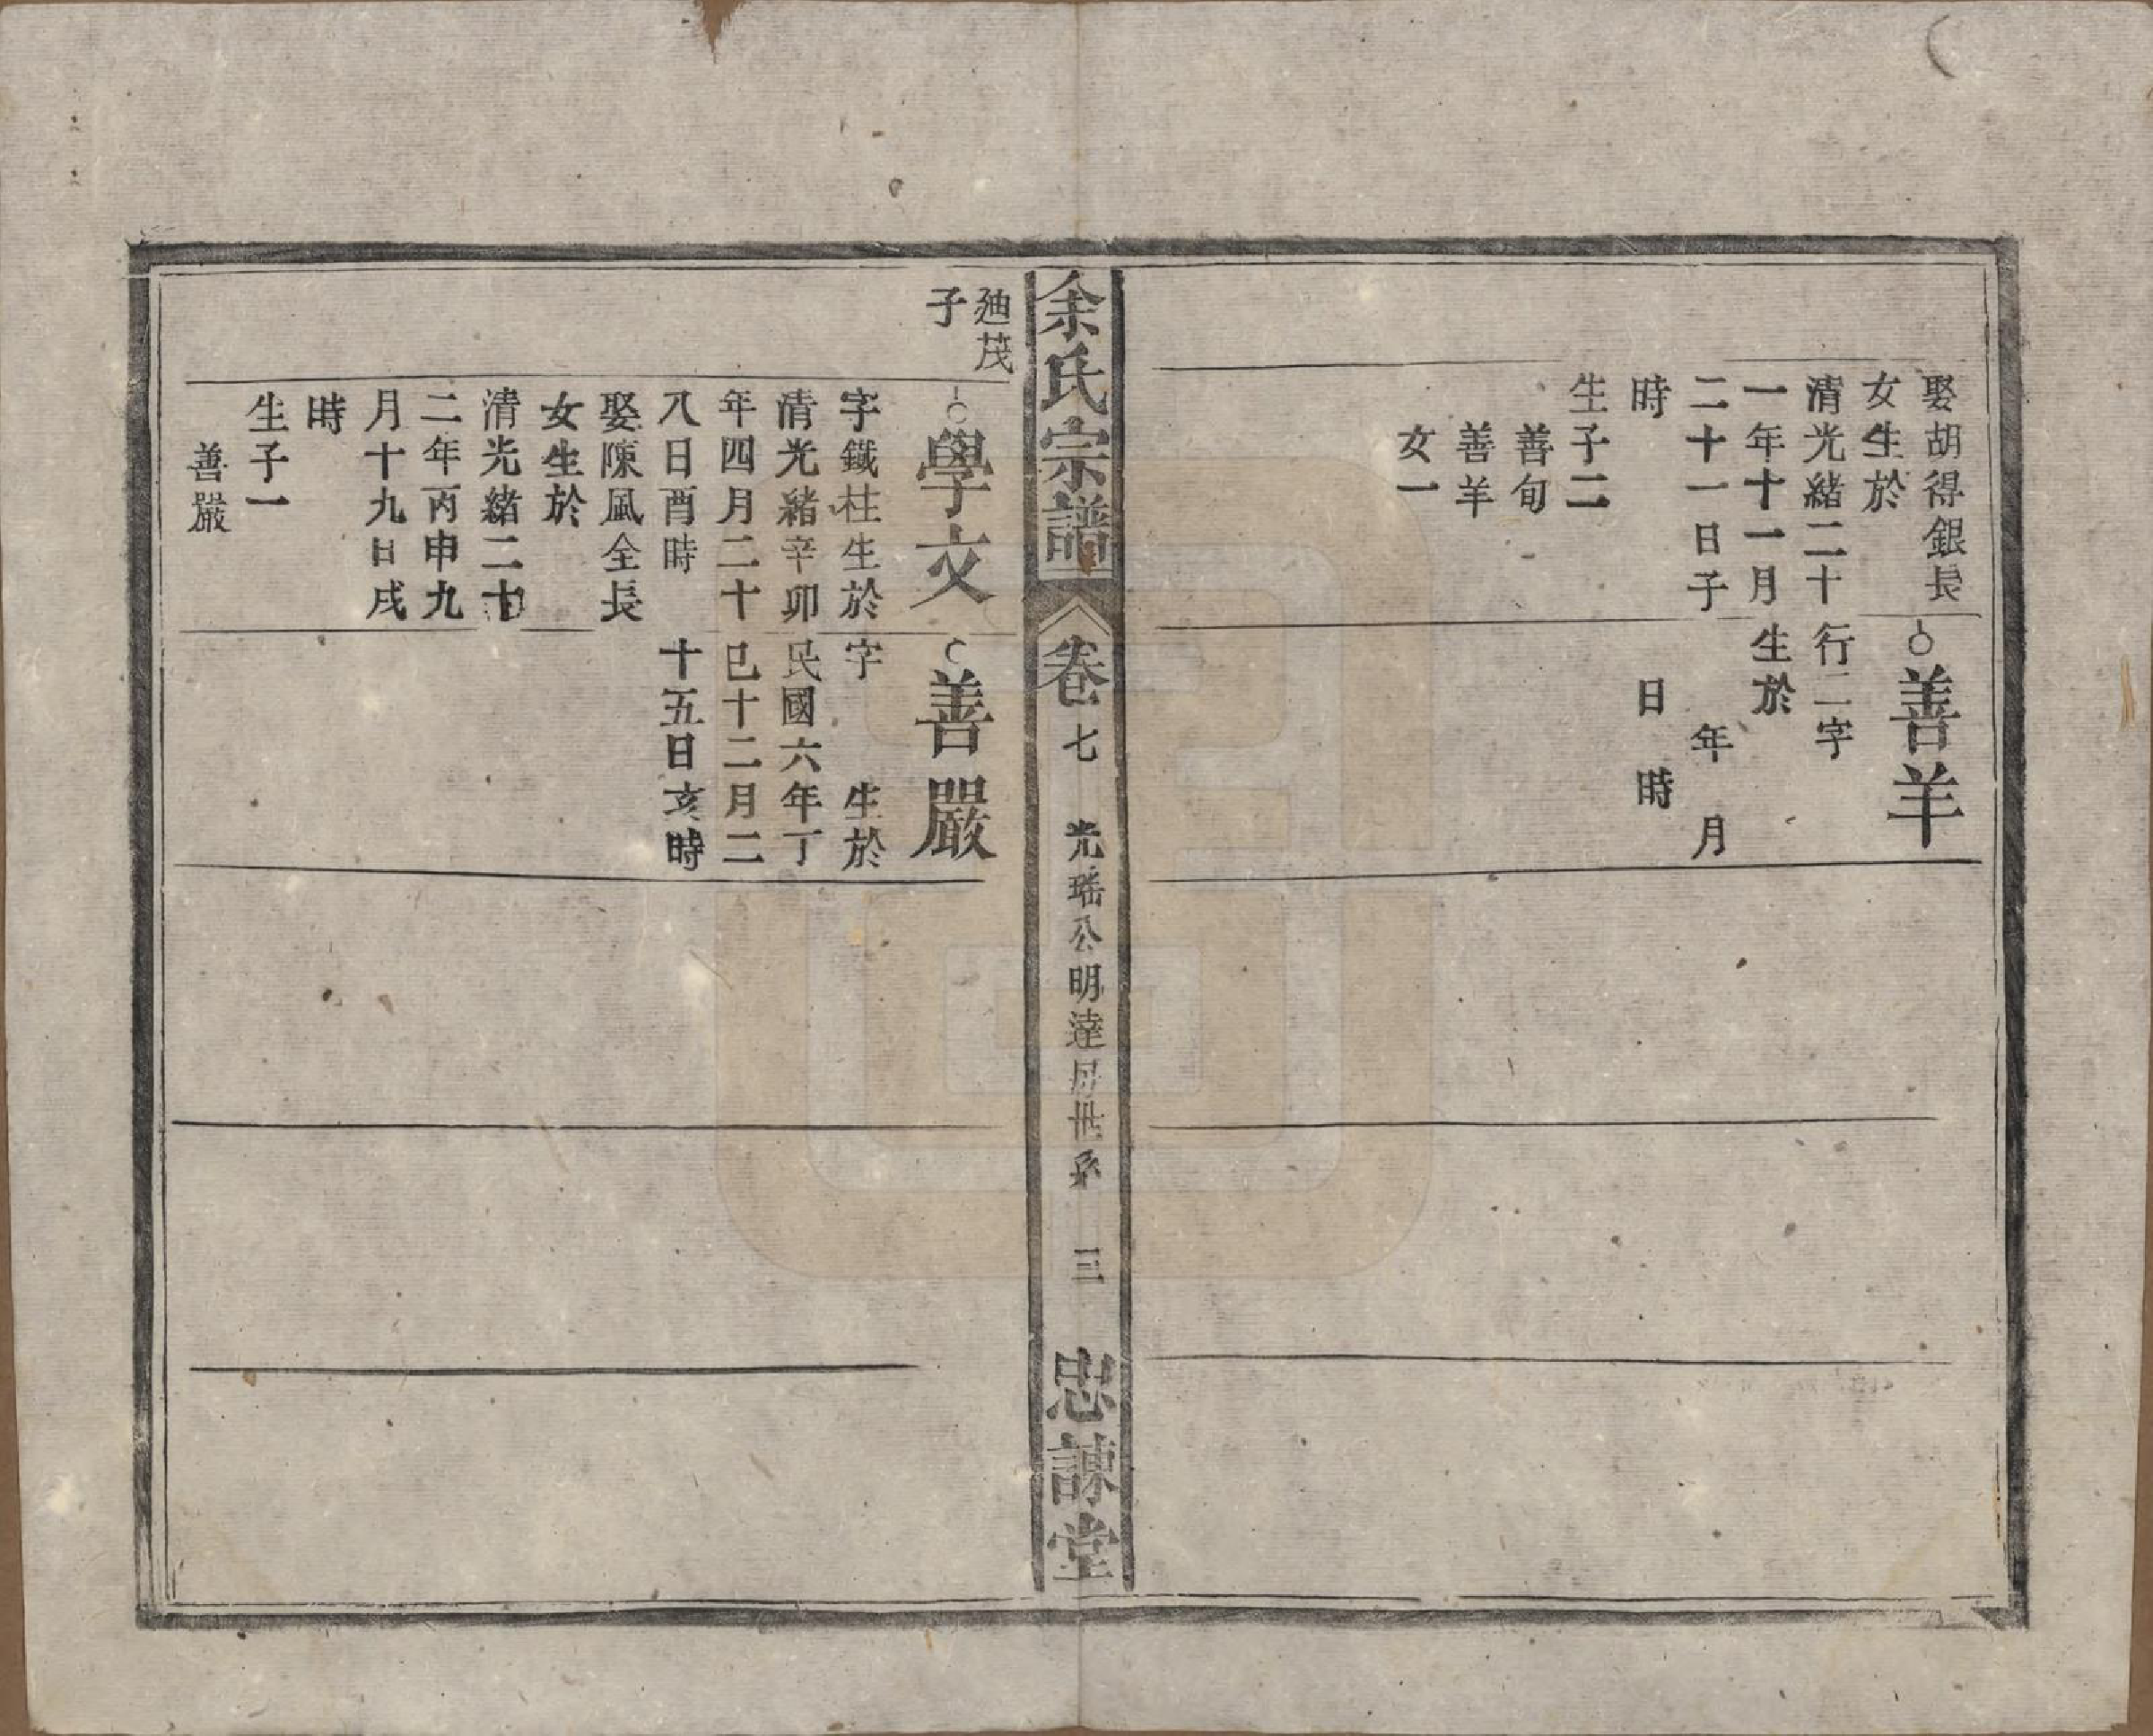 娶胡得銀長
女生於
清光緒二十
一年十一月
二十一日子
時
生子二
善旬
善羊
女一
善羊
行二字
生於
年　月
日　時
余氏宗譜
卷七　光瑤公明達房世系　三
忠諫堂
廸茂
子
學文
字鐵柱生於
清光緒辛卯
年四月二十
八日酉時
娶陳風全長
女生於
清光緒二十
二年丙申九
月十九日戌
時
生子一
善嚴
善嚴
字　生於
民國六年丁
巳十二月二
十五日亥時